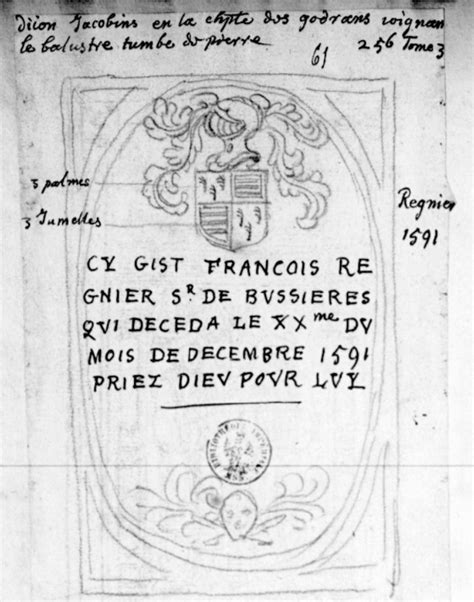 Dijon Jacobins en la chpte des godrans joignan
le balustre tumbe de pierre
61
256 Tome 3
3 palmes
3 Jumelles
Regnier
1591
CY GIST FRANCOIS RE
GNIER Sʳ DE BVSSIERES
QVI DECEDA LE XXᵐᵉ DV
MOIS DE DECEMBRE 1591
PRIEZ DIEV POVR LVY
BIBLIOTHEQUE IMPERIALE MSS